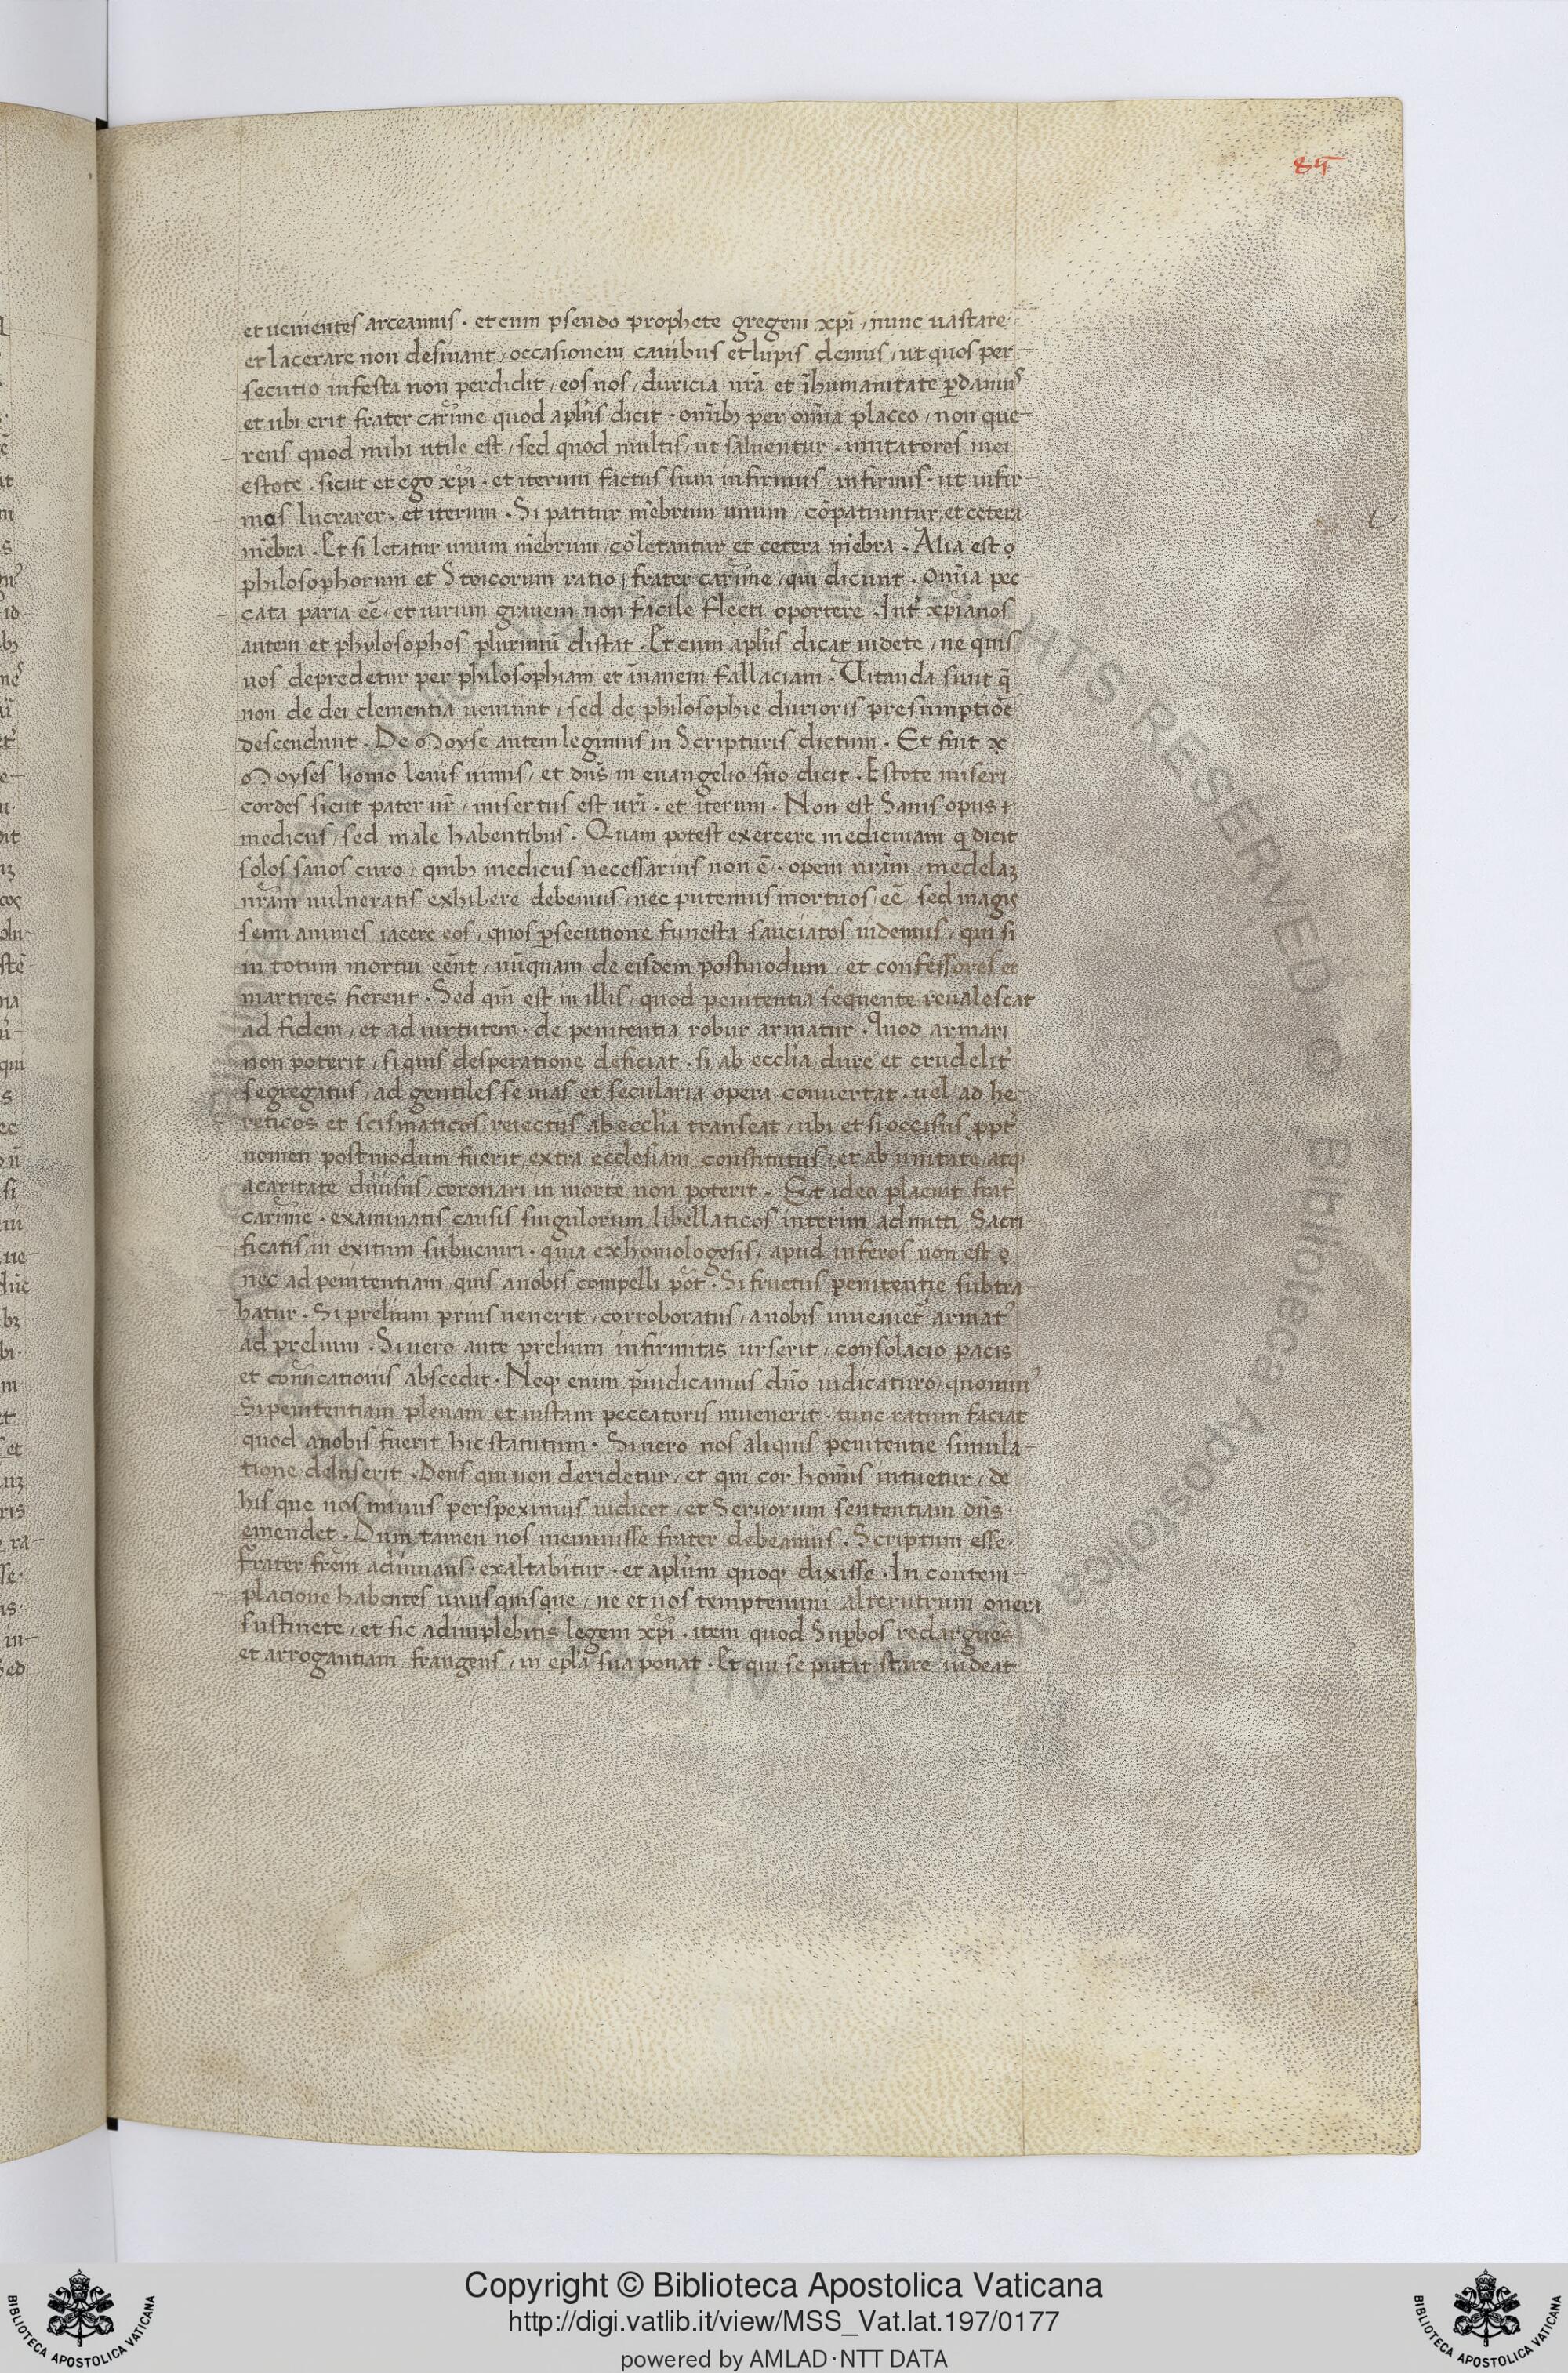 85
et uenientes arceamus · et cum pseudo prophete gregem xp̄i / nunc uastare
et lacerare non desinant / occasionem canibus et lupis demus / ut quos per-
secutio infesta non perdidit / eos nos / duricia nr̄a et īhumanitate ꝑdamus
et ubi erit frater carīme quod apl̄us dicit · om̄ib; per om̄ia placeo / non que-
rens quod mihi utile est / sed quod multis / ut saluentur · imitatores mei
estote · sicut et ego xp̄i · et iterum factus sum infirmus / infirmis · ut infir-
mos lucrarer · et iterum · Si patitur mēbrum unum / cōpatiuntur et cetera
mēbra · Et si letatur unum mēbrum / cōletantur et cetera mēbra · Alia est
philosophorum et Stoicorum ratio / frater carīme / qui dicunt · om̄ia pec
cata paria eē · et uirum grauem non facile flecti oportere · Int̄ xp̄ianos
autem et phylosophos plurimū distat · Et cum apl̄us dicat uidete / ne quis
uos depredetur per philosophiam et īnanem fallaciam · Uitanda sunt q̄
non de dei clementia ueniunt / sed de philosophie durioris presumptiōe
descendunt · De Moyse autem legimus in Scripturis dictum · Et fuit
Moyses homo lenis nimis / et dn̄s in euangelio suo dicit · Estote miseri-
cordes sicut pater ur̄ / misertus est uri · et iterum · Non est Sanis opus
medicus / sed male habentibus · Quam potest exercere medicinam q dicit
solos sanos curo / quib; medicus necessarius non ē · opem nrām / medelaꝫ
nrām uulneratis exhibere debemus / nec putemus mortuos eē / sed magis
semi animes iacere eos / quos ꝑsecutione funesta sauciatos uidemus / qui si
in totum mortui eēnt / nūquam de eisdem postmodum / et confessores et
martires fierent · Sed qm̄ est in illis / quod penitentia sequente reualescat
ad fidem / et ad uirtutem · de penitentia robur armatur · Quod armari
non poterit / si quis desperatione deficiat · si ab eccl̄ia dure et crudelit̄
segregatus / ad gentiles se uias et secularia opera conuertat · uel ad he-
reticos et scismaticos reiectus ab eccl̄ia transeat / ubi et si occisus ꝓpt̄
nomen postmodum fuerit / extra ecclesiam constitutus / et ab unitate / atq
acaritate diuisus / coronari in morte non poterit · Et ideo placuit frat̄
carīme · examinatis causis singulorum libellaticos interim admitti Sacri-
ficatis in exitum subueniri · quia exhomologesis / apud inferos non est
nec ad penitentiam quis anobis compelli pōt · Si fructus penitentie subtra
hatur · Si prelium prius uenerit / corroboratus / anobis inueniet̄ armat̄
ad prelium · Si uero ante prelium infirmitas urserit / consolacio pacis
et com̄icationis abscedit · Neq enim p̄iudicamus dn̄o iudicaturo / quomin
Si penitentiam plenam et iustam peccatoris inuenerit · tunc ratum faciat
quod anobis fuerit hic statutum · Si uero nos aliquis penitentie simula-
tione deluserit · Deus qui non deridetur / et qui cor hom̄is intuetur / de
his que nos minus perspeximus iudicet / et Seruorum sententiam dn̄s ·
emendet · Dum tamen nos meminisse frater debeamus · Scriptum esse ·
Frater frēm adiuuans · exaltabitur · et apl̄um quoq dixisse · In contem-
placione habentes unusquisque / ne et uos temptemini alterutrum onera
sustinete / et sic adimplebitis legem xp̄i · item quod Suꝑbos redarguēs
et arrogantiam frangens / in epl̄a sua ponat · Et qui se putat stare uideat
Copyright © Biblioteca Apostolica Vaticana
http://digi.vatlib.it/view/MSS_Vat.lat.197/0177
powered by AMLAD·NTT DATA
BIBLIOTECA APOSTOLICA VATICANA
BIBLIOTECA APOSTOLICA VATICANA